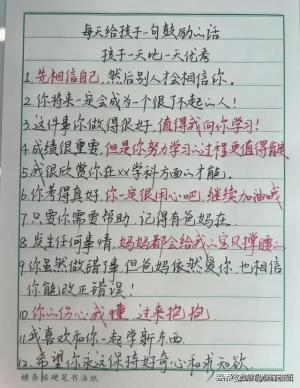 每天给孩子一句鼓励的话
孩子一天比一天优秀
1.先相信自己,然后别人才会相信你。
2.你将来一定会成为一个很了不起的人!
3.这件事你做得很好,值得我向你学习!
4.成绩很重要,但是你努力学习的过程更值得
5.我很欣赏你在xx学科方面的才能。
6.你考得真好,你一定很用心吧,继续加油哦
7.只要你需要帮助,记得有爸妈在。
8.发生任何事情,妈妈都会给我的宝贝撑腰的
9.你虽然做错了事,但爸妈依然爱你,也相信
你能改正错误!
10.你的伤心我懂,过来抱抱。
11.我喜欢和你一起学新东西。
12.希望你永远保持好奇心和求知欲。
横条格硬笔书法纸